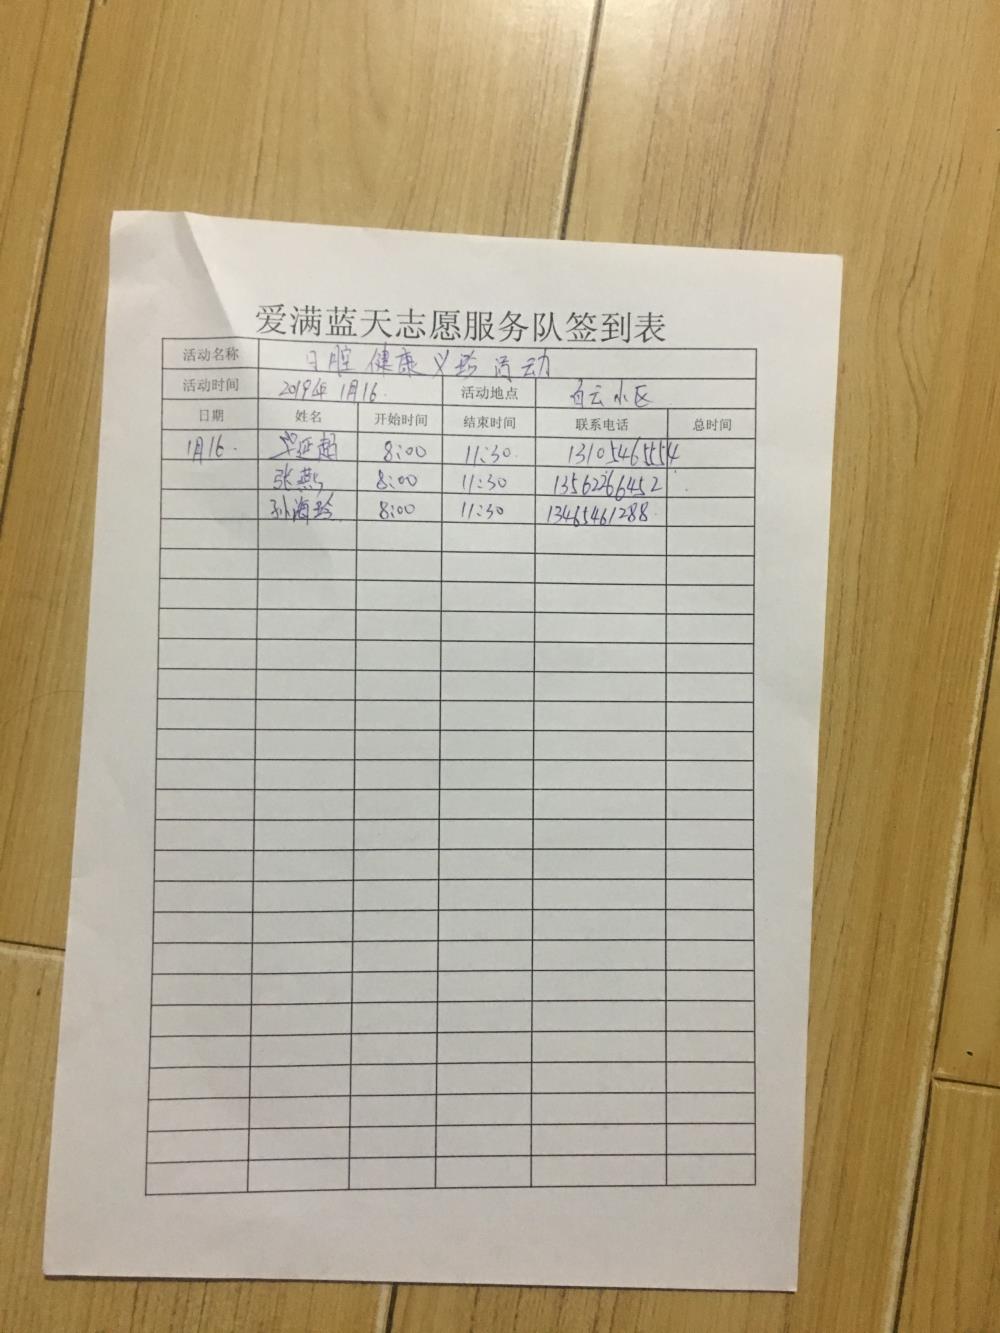 爱满蓝天志愿服务队签到表
活动名称 口腔健康义诊活动
活动时间 2019年1月16. 活动地点 白云小区
日期 姓名 开始时间 结束时间 联系电话 总时间
1月16. 延超 8:00 11:30. 13105465554
张燕 8:00 11:30 13562266452
孙海玲. 8:00 11:30 13465461288.